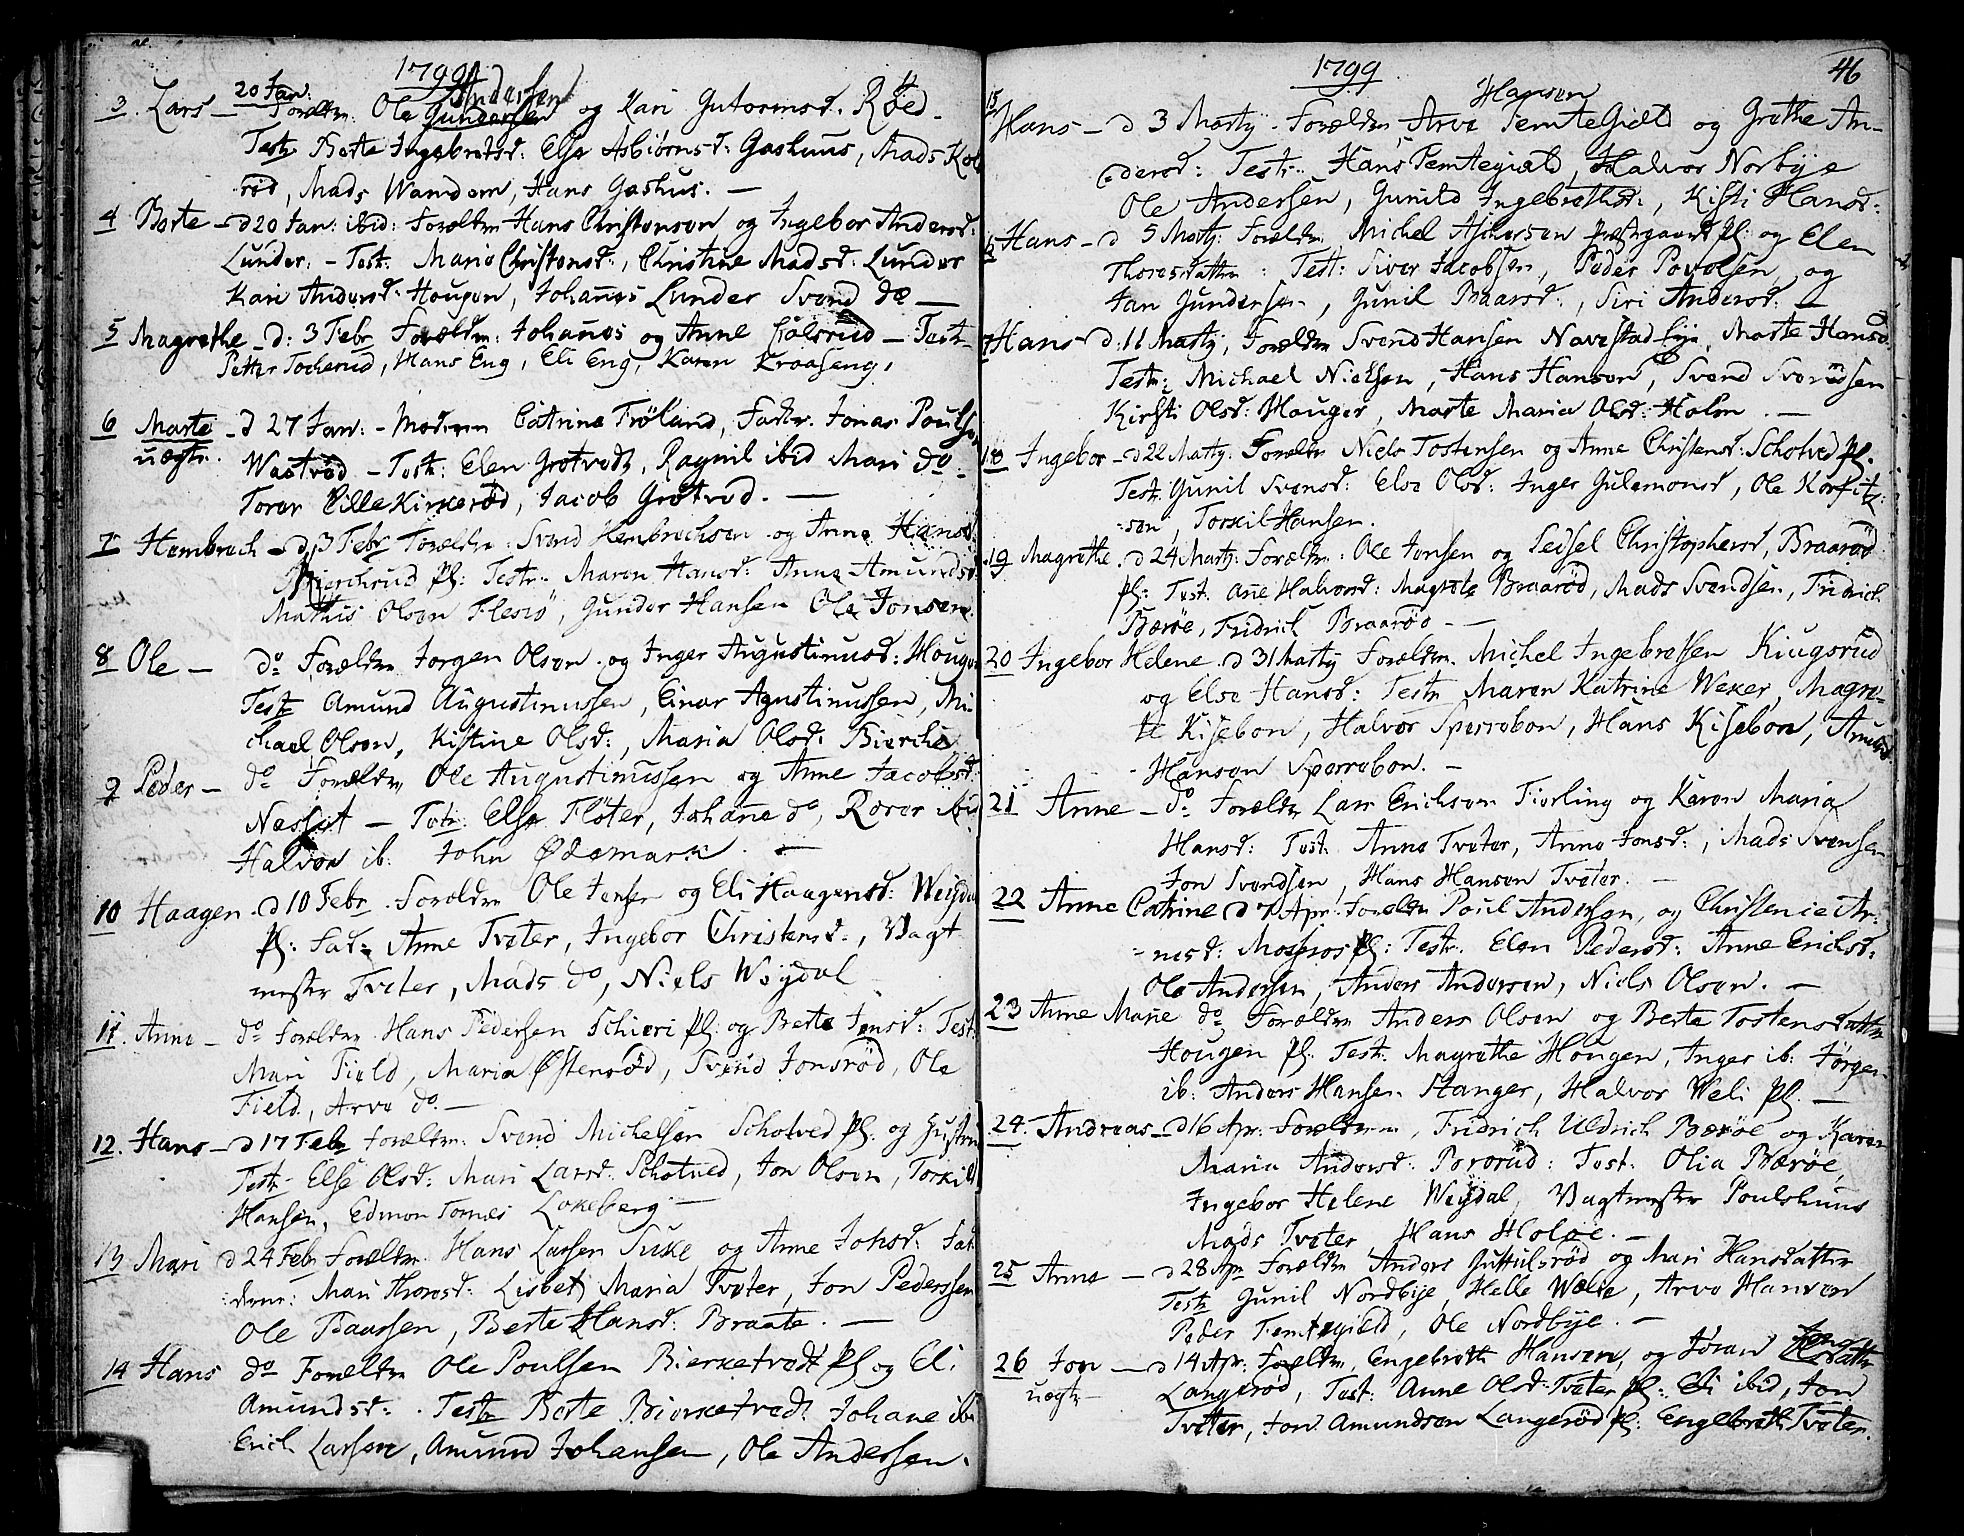 1799
3. Lars — 20 Jan: Forældre Ole Gundersen Andersen og Kari Gutormsd: Røed.
Testr Berte Ingebretsd: Else Asbiørnsd: Gashuus, Mads Kol
rød, Mads Wamdem, Hans Gashus. —
4 Berte — d 20 Jan: ibid: Forældre Hans Christensen og Ingebor Andersd:
Lunder. — Test: Marie Christensd:, Christine Madsd: Lunder
Kari Andersd: Hougen, Johanes Lunder Svend do —
5 Magrethe — d: 3 Febr Forældre: Johanes og Anne — Testr
Petter Tocherud, Hans Eng, Eli Eng, Karen Kraaseng,
6 Marte — d 27 Jan: — Moderen Catrine Frøland, Fadr. Jonas Poulse
uægte. Wastvød — Test: Elen Grøtvedt, Ragnil ibid Mari do.
Torer Lille Kirkerød, Jacob Grøtved. —
7 Hembrech — d 3 Febr Forældre: Svend Hembrechsen og Anne Hansd
Bierchrud pl: Testr. Maren Hansd: Anne Amundsd
Mathis Olsen Flesiø, Gunder Hansen Ole Jonsen
8 Ole — do Forældre Jorgen Olsen og Inger Augustinusd: Hougen
Testr Amund Augustinussen, Einar Agustinussen, Mi-
chael Olsen, Kistine Olsd:, Maria Olsd: Bierche
9 Peder — do Forældre Ole Augustinussen og Anne Jacobsd:
Nesset — Testr: Else Fløter, Johane do, Rorer ibid
Halvor ib: John Ødemark. —
10 Haagen. d 10 Febr. Forældre Ole Jensen og Eli Haagensd: Weydal
pl: Fad: Anne Tveter, Ingebor Christensd:, Vagt
mester Tveter, Mads do, Niels Weydal
11. Anne — do Forældre Hans Pedersen Schieri pl: og Berte Jensd: Test
Mari Field, Maria Østensød, Svend Jonsrød, Ole
Field, Arve do. —
12. Hans — d 17 Febr Forældre: Svend Michelsen Schotved pl: og
Testr Else Olsd: Mari Larsd: Schotved, Jon Olsen, Torkild
Hansen, Edmon Tomes Lokeberg —
13 Mari d 24 Febr Forældre Hans Larsen Suke og Anne Johsd: Fad
derne: Mari Thoresd: Lisbet Maria Tveter, Jon Pederssen
Ole Baarssen, Berte Hansd: Braate. —
14 Hans do Forældre Ole Poulsen Bierketvedt pl og Eli
Amundsd: Testr Berte Bierketvedt Johane ib:
Erich Larsen, Amund Johansen, Ole Andersen.
1799 46
15 Hans — d 3 Marty. Forældre Arve Hansen TemteGield og Grethe An-
dersd: Testr: Hans Temtegield, Halvor Norbye
Ole Andersen, Gunild Ingebrethsd:, Kisti Hansd:
16 Hans — d 5 Marty: Forældre Michel Aschersen Præstegaard pl: og Elen
Thoresdatter: Test: Siver Jacobsen, Peder Povelsen, og
Jan Gundersen, Gunil Baarsd:, Siri Andersd: —
17 Hans — d: 11 Marty, Forældre Svend Hansen Navestad Eye, Marte Hansd.
Testr: Michael Nielsen, Hans Hansen, Svend Svendsen
Kirsti Olsd: Houger, Marte Maria Olsd: Holm. —
18 Ingebor — d 22 Marty: Forældre Niels Tostensen og Anne Christensd: Schotved pl.
Test: Gunil Svensd: Else Olsd: Inger Gulemonsd, Ole Korfitz:
sen, Torkil Hansen.
19 Magrethe. d 24 Marty: Forældre: Ole Jonsen og Sedsel Christophersd, Braarød
pl: Test: Ane Halvorsd: Magrete Braarød, Mads Svendsen, Fridrich
Bærøe, Fridrich Braarød — —
20 Ingebor Helene. d 31 Marty Forældre. Michel Ingebretsen Kiugsrud
og Else Hansd: Testr Maren Katrine Weker, Magre-
te Kisebon, Halvor Sperrebon, Hans Kisebon, Amund
Hansen Sperrebon. —
21 Anne — do Forældre Lars Erichsen Fiorling og Karen Maria
Hansd: Test. Anne Tveter, Anne Jonsd:, Mads Svensen
Jon Svendsen, Hans Hansen Tveter. —
22 Anne Catrine d 7 Apr: Forældre Poul Andersen, og Christence Ar-
nesd: Mosfros pl: Testr. Elen Pedersd: Anne Erichsd:
Ole Andersen, Anders Andersen, Niels Olsen. —
23 Anne Marie do Forældre Anders Olsen og Berte Tostensdatter
Hougen pl: Test: Magrethe Hougen, Inger ib: Jørgen
ib: Anders Hansen Stanger, Halvor Weli pl. —
24. Andreas — d 16 Apr: Forældrene, Fridrich Uldrich Bærøe og Karen
Maria Andersd: Pererud: Test. Olia Bærøe,
Ingebor Helene Weydal, Vagtmester Poulshuus
Mads Tveter Hans Holøe. —
25 Anne — d 28 Apr Forældre Anders Guttulsrød og Mari Hansdatter
Testr Gunil Nordbye, Helle Wælie, Arve Hansen
Peder Temtegield, Ole Nordbye. —
26 Jon — d 14 Apr: Forældre, Engebreth Hansen, og Jøran Jensdatter
uægte Langerød, Test: Anne Olsd: Tveter pl: Eli ibid, Jon
Tveter, Jon Amundsen Langerød pl: Engebreth Tveter.